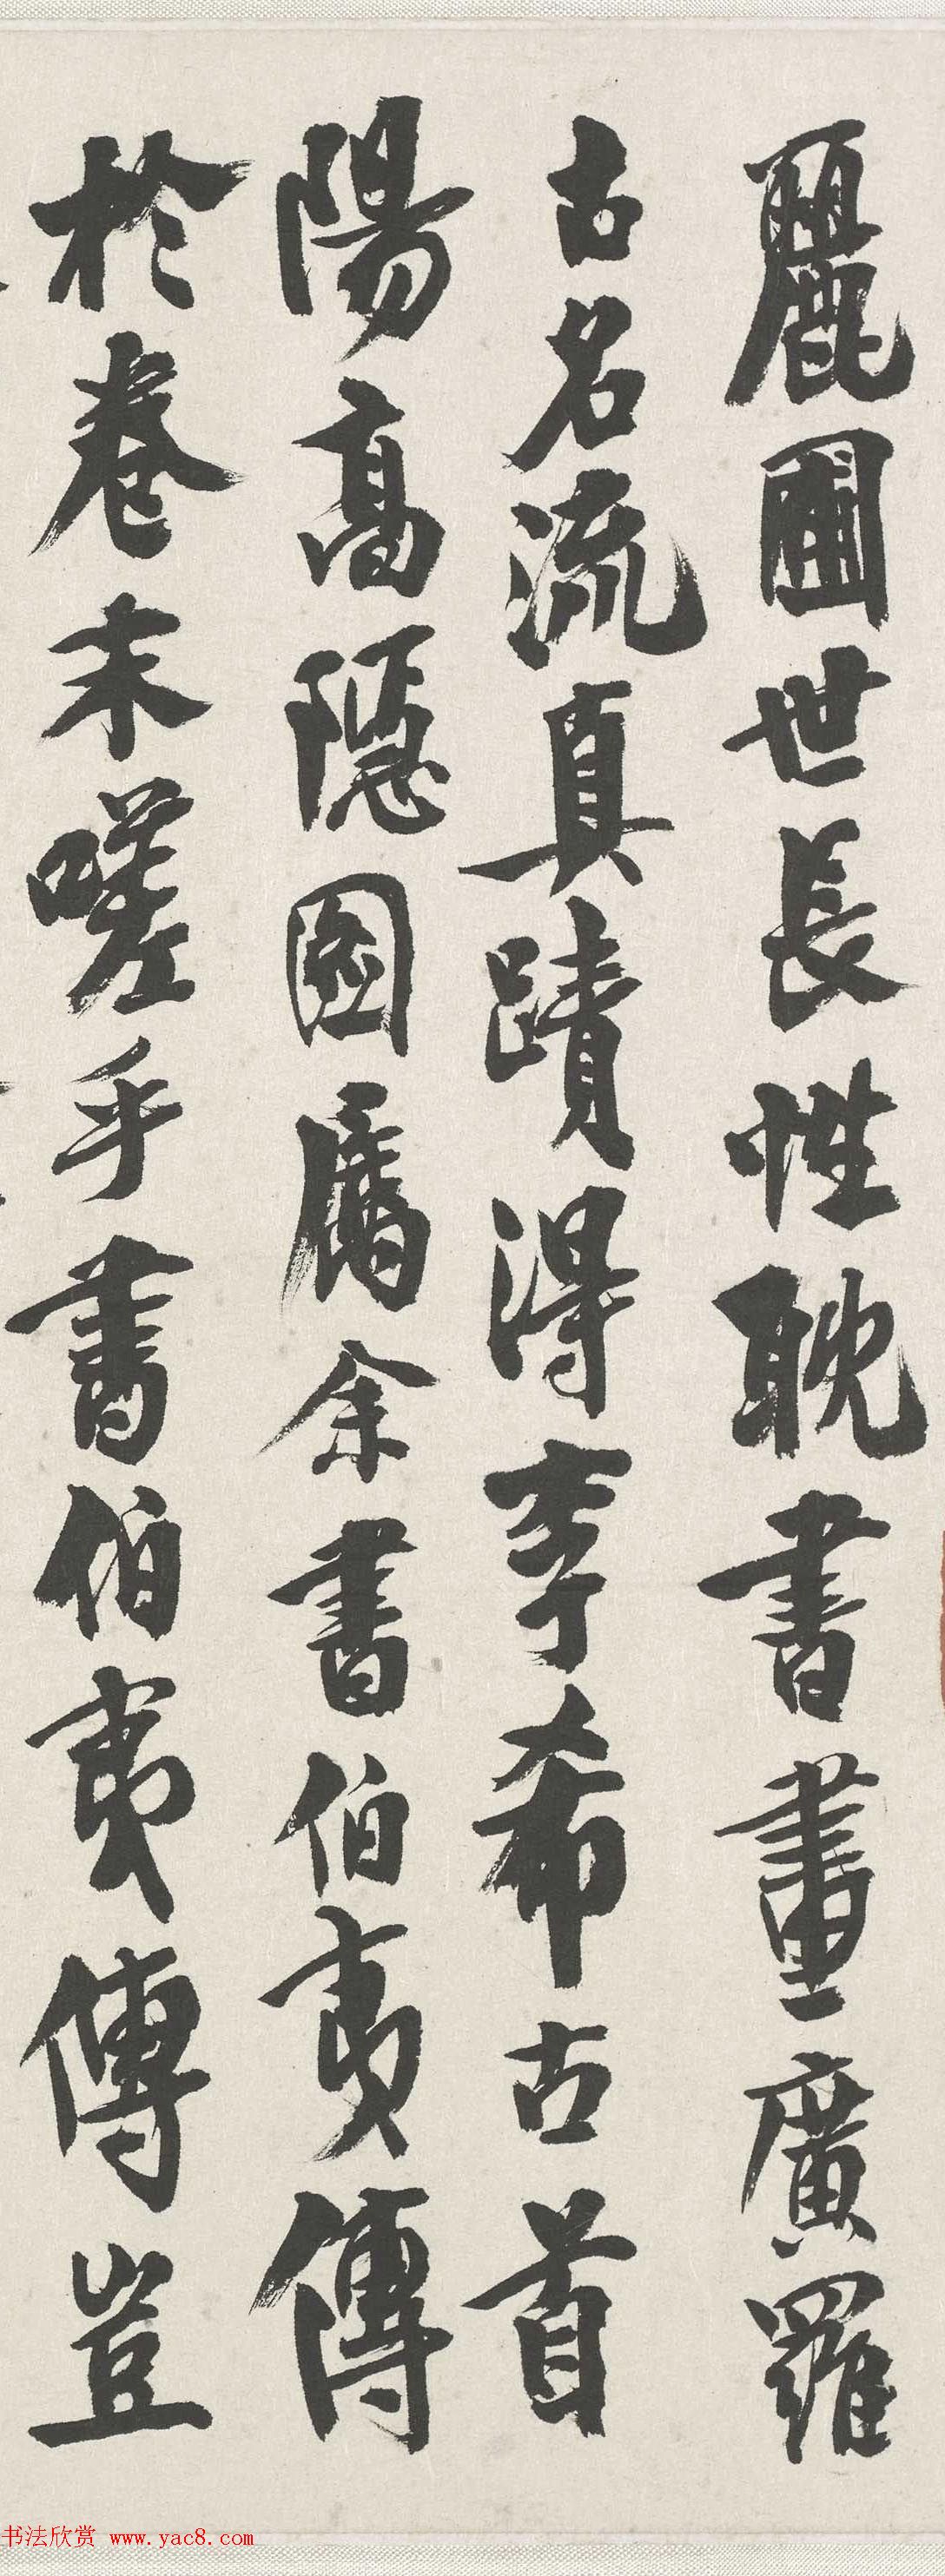 麗圃世長性耽書畫廣羅
古名流真蹟得李希古首
陽高隱圖屬余書伯夷傳
於卷末嗟乎書伯夷傳豈
书法欣赏 www.yac8.com